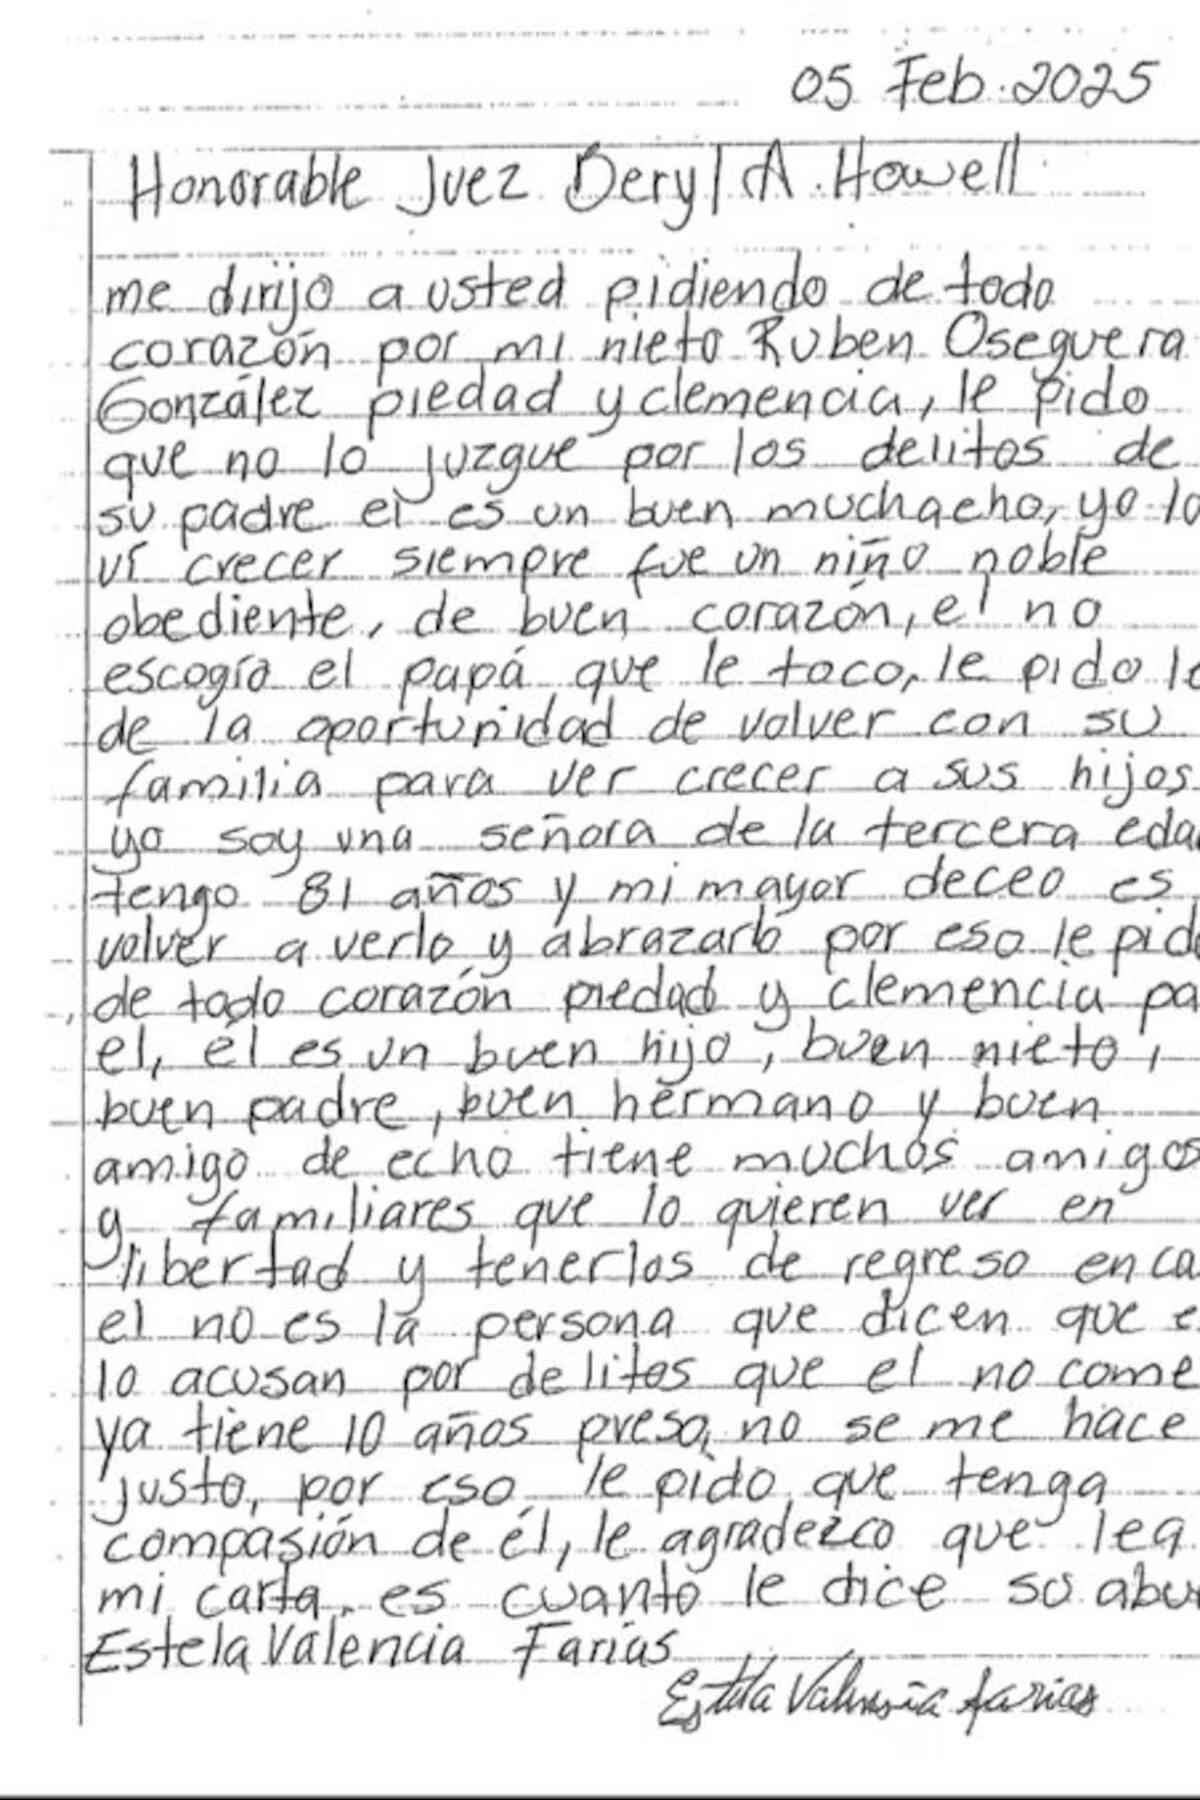 05 Feb. 2025
Honorable Juez Beryl A. Howell
me dirijo a usted pidiendo de todo
corazón por mi nieto Ruben Oseguera
González piedad y clemencia, le pido
que no lo juzgue por los delitos de
su padre el es un buen muchacho, yo lo
ví crecer siempre fue un niño noble
obediente, de buen corazón, el no
escogío el papá que le toco, le pido le
de la oportunidad de volver con su
familia para ver crecer a sus hijos
yo soy una señora de la tercera eda
tengo 81 años y mi mayor deceo es
volver a verlo y abrazarlo por eso le pido
de todo corazón piedad y clemencia pa
el, él es un buen hijo, buen nieto,
buen padre, buen hermano y buen
amigo de echo tiene muchos amigos
y familiares que lo quieren ver en
libertad y tenerlos de regreso en ca
el no es la persona que dicen que e
lo acusan por delitos que el no come
ya tiene 10 años preso, no se me hace
justo, por eso le pido que tenga
compasión de él, le agradezco que lea
mi carta, es cuanto le dice su abu
Estela Valencia Farías
Estela Valencia Farias